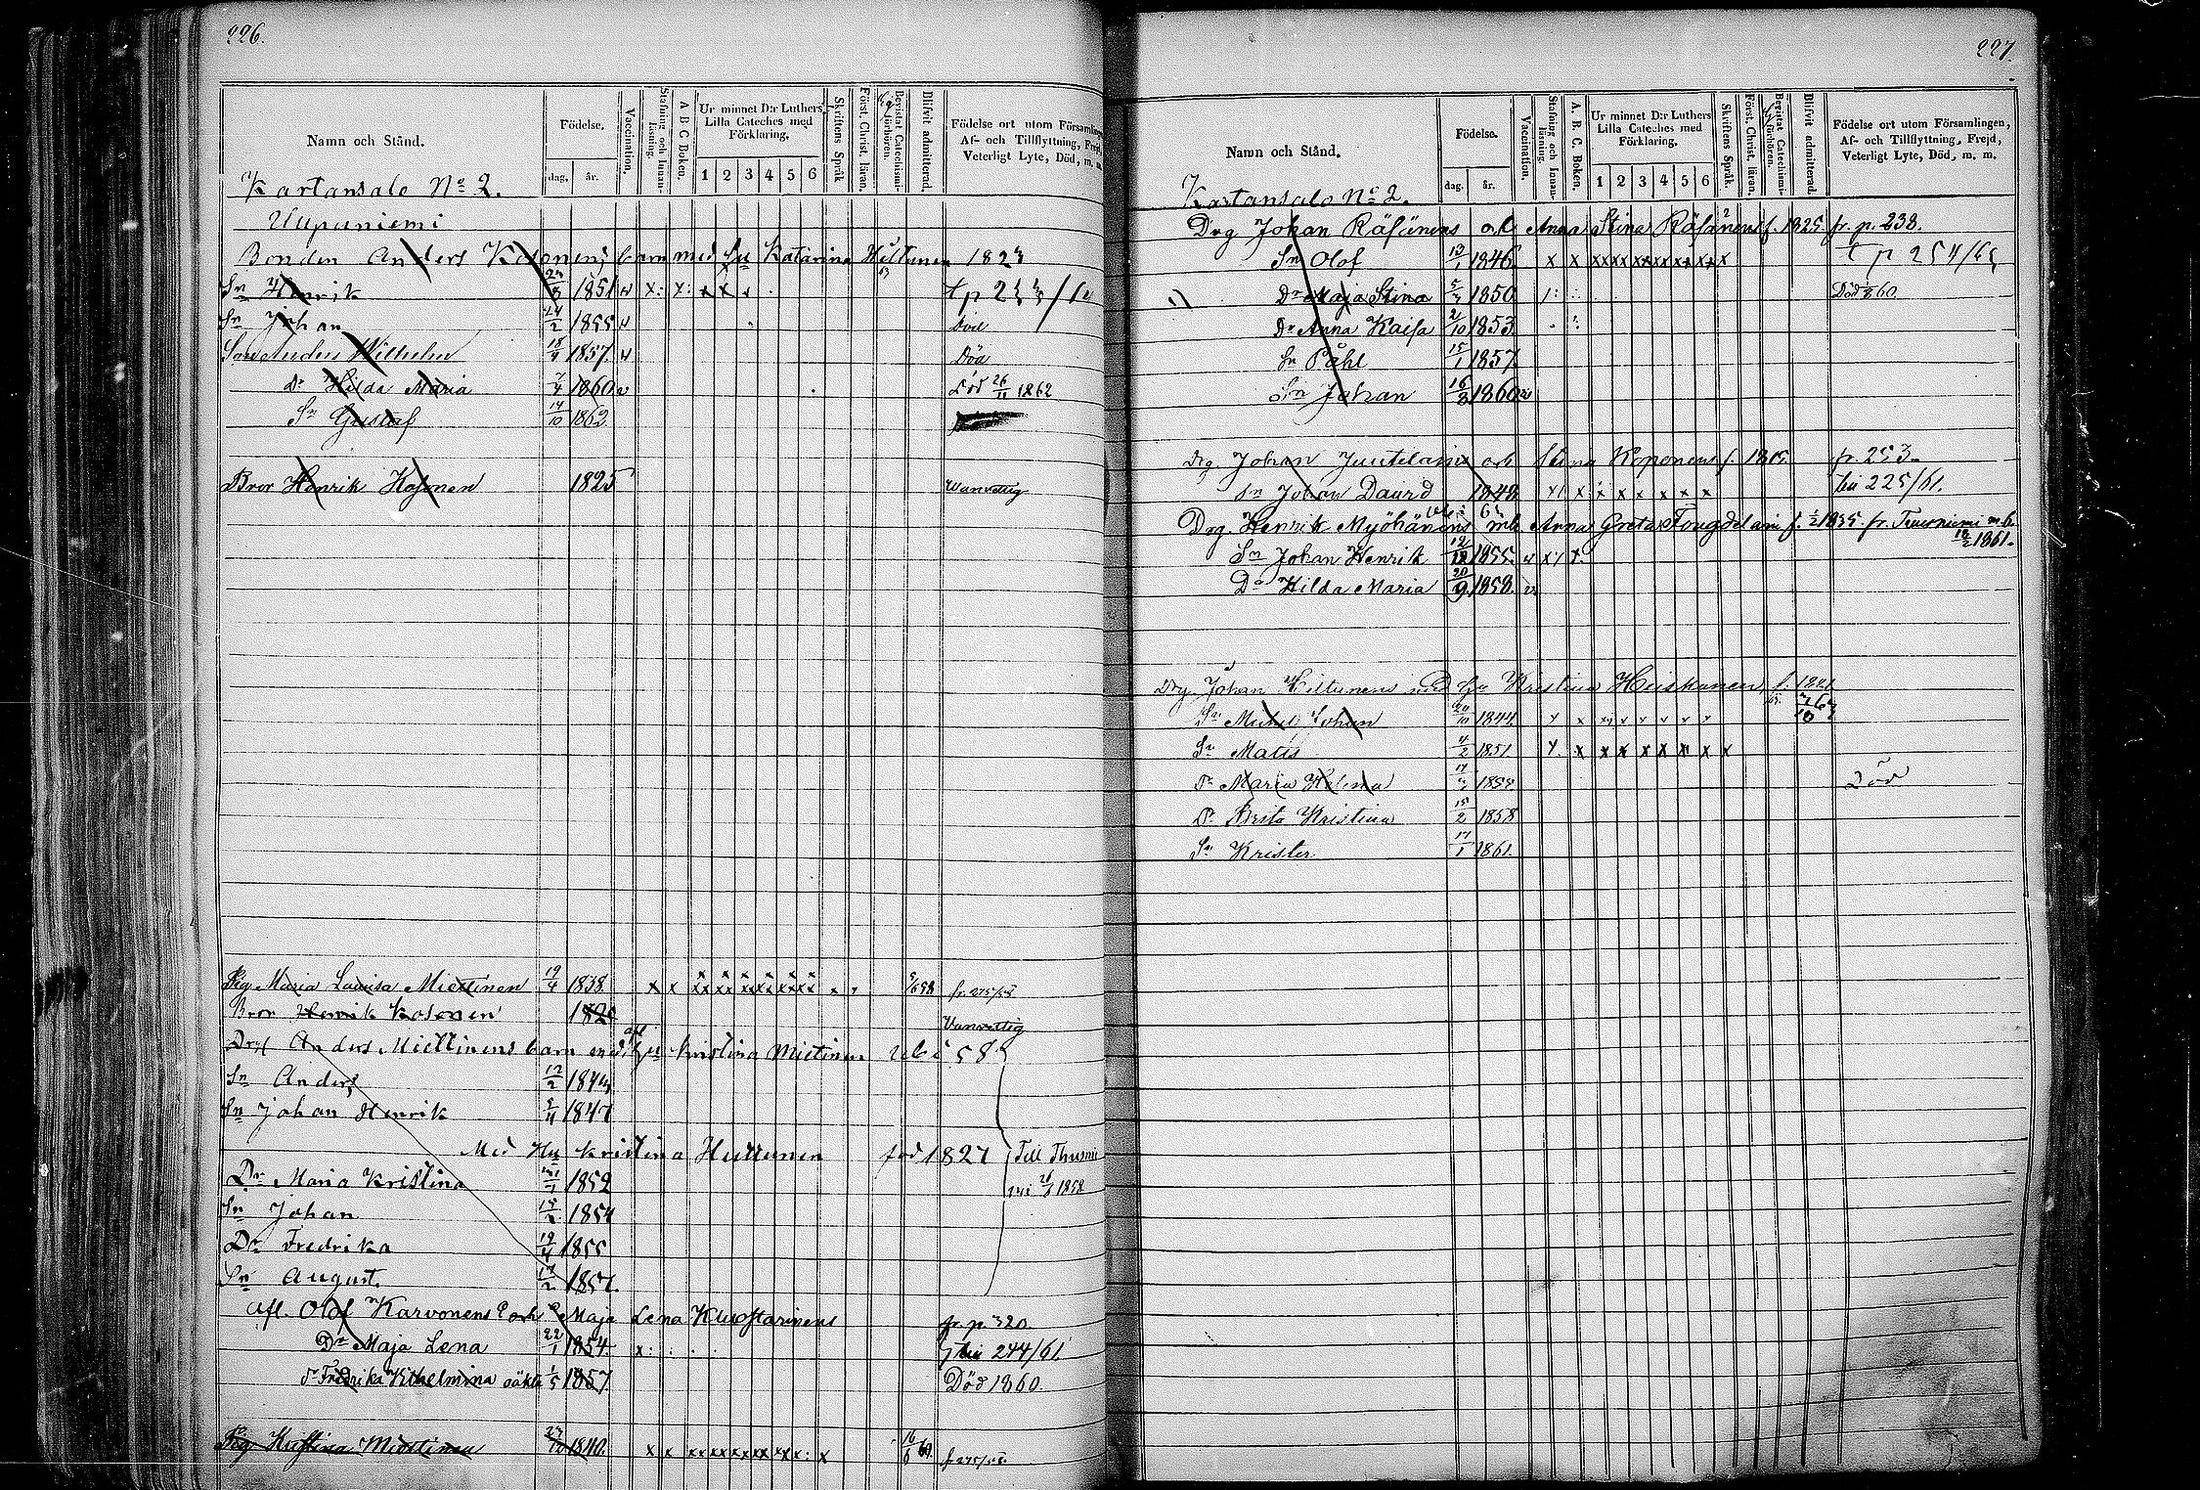 226.
Namn och Stånd.
Födelse.
dag. år.
Vaccination.
Stafning och Innan-läsning.
A B C Boken.
Ur minnet D:r Luthers Lilla Cateches med Förklaring.
1 2 3 4 5 6
Skriftens Språk
Först. Christ. läran.
Bevistat Catechismi-förhören.
Blifvit admitterad.
Födelse ort utom Församlingen, Af- och Tillflyttning, Frejd, Veterligt Lyte, Död, m. m.
Kartansalo No 2.
Uupuniemi
Bonden Anders Kosonens barn med Hu Katarina Hiltunen 1823
Sn Henrik 1851 x: x: x x
Sn Johan 24/2 1855 Död
Son Anders Wilhelm 18/9 1857 Död
Dr Hilda Maria 7/4 1860 Död 26/11 1862
Sn Gustaf 14/10 1862
Bror Henrik Kosonen 1825 Wanvettig
Pig Maria Lovisa Miettinen 19/4 1838 x x xx xx xx xx xx xx fr. 275/58
Bror Henrik Kosonen 1825 Vanvettig
Drg Anders Miettinens barn med afl Hu Kristina Mietinen
Sn Anders 17/2 1843
Sn Johan Henrik 1847
Med Hu Kristina Huttunen född 1827 Till Thusnie
Dr Maria Kristina 1852 mi 1858
Sn Johan 1854
Dr Fredrika 19/4 1855
Sn August. 17/2 1857.
Afl. Olof Karvonens och Maja Lena Kluostarinens fr. p. 320
Dr Maja Lena 22/1 1854. x: till 244/61
Dr Fredrika Wilhelmina oäkta 1/5 1857. Död 1860.
Pig Kristina Miettinen 1840. x x xx xx xx xx xx x: x 16/6 60. fr 275/58
227.
Namn och Stånd.
Födelse.
dag. år.
Vaccination.
Stafning och Innan-läsning.
A. B. C. Boken.
Ur minnet D:r Luthers Lilla Cateches med Förklaring.
1 2 3 4 5 6
Skriftens Språk.
Först. Christ. läran.
Bevistat Catechismi-förhören.
Blifvit admitterad.
Födelse ort utom Församlingen, Af- och Tillflyttning, Frejd, Veterligt Lyte, Död, m. m.
Kartansalo No 2.
Drg Johan Räsänens och Anna Stina Räsänens f. 1825 fr. p. 238.
Sn Olof 13/1 1846 x x xx xx xx xx xx xx x t p 254/65
Dr Maja Stina 5/7 1850 Död 60.
Dr Anna Kaisa 2/10 1853
Sn Påhl 15/1 1857.
Sn Johan 16/8 1860
Drg. Johan Juutelains och Stina Koponens f. 1815. fr. 253.
Sn Johan David 1848 x x x x x x x x till 225/61.
Drg. Henrik Myöhänens mh Anna Greta Tougdelain f. 1/2 1835. fr. Tuusniemi m. b. 1861.
Sn Johan Henrik 12/12 1855. x x
Dr Hilda Maria 20/9 1858.
Drg Johan Hiltunens med Hu Kristina Heiskanen f. 1821
Sn Mickel Johan 20/10 1844 x x xx x x x x x
Sn Matts 4/2 1851. x. x x x x x x x x
Dr Maria Helena 1855 Död
Dr Brita Kristina 15/2 1858
Sn Krister 17/1 1861.